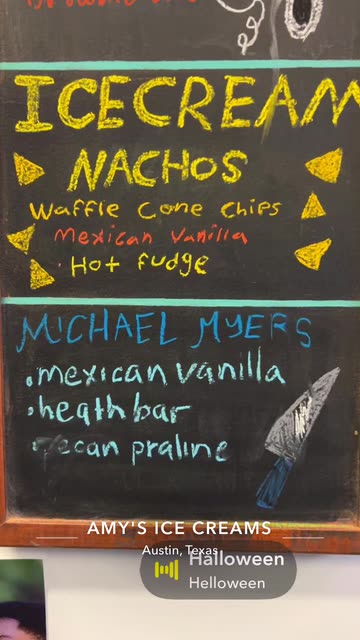 ICECREAM
NACHOS
Waffle Cone Chips
Mexican Vanilla
Hot fudge
MICHAEL MYERS
mexican vanilla
heath bar
pecan praline
AMY'S ICE CREAMS
Austin, Texas
Halloween
Helloween